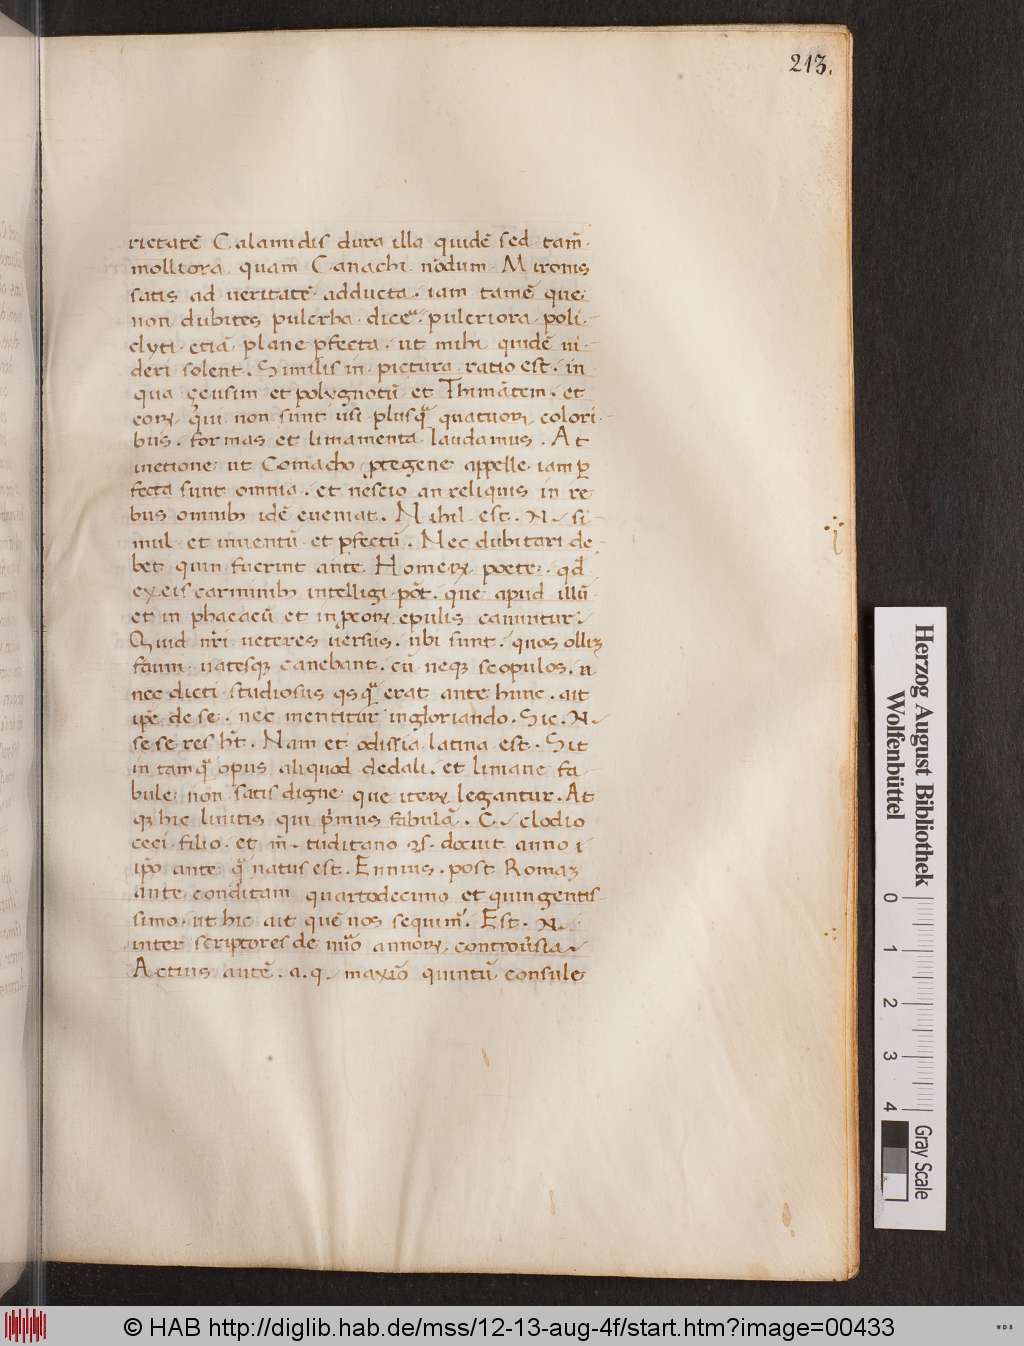 213.
rietatē Calamidis dura illa quidē sed tam̄
molliora quam Canachi nōdum Mironis
satis ad veritatē adducta iam tamē que
non dubites pulcrha dicea pulcriora poli
clyti etiā plane pfecta ut mihi quidē ui
deri solent. Similis in pictura ratio est. in
qua çeusim et polygnotū et Thimātem. et
eorꝝ qui non sunt usi plusqȝ quatuorꝝ colori
bus. formas et linamenta laudamus. At
inetione ut Comacho ꝓtegene appelle iam ꝑ
fecta sunt omnia. et nescio an reliquis in re
bus omnibȝ idē eveniat. Nihil est. N. si
mul et inventū et pfectū. Nec dubitari de
bet quin fuerint ante Homerꝝ poete. qđ
ex eis carminibȝ intelligi pōt. que apud illū
et in phaeacū et in ꝓcorꝝ epulis canuntur.
Quid nr̄i veteres versus. ubi sunt. quos olliȝ
fauni vatesqȝ canebant. cū neqȝ scopulos. n
nec dicti studiosus qsqȝ erat ante hunc. ait
ip̄e de se. nec mentitur in gloriando. Sic. N.
sese res ht̄. Nam et odissia latina est. Sic
in tamqȝ opus aliquod dedali. et liniane fa
bule non satis digne que iterꝝ legantur. At
qȝ hic linitis qui p̄mus fabulā. C. clodio
ceci filio. et m̄. tuditano ꝯs. docuit anno i
ip̄o ante qȝ natus est. Ennius. post Romaȝ
ante conditam quartodecimo et quingentis
simo. ut hic ait quē nos sequim̄. Est. N.
inter scriptores de nūo annorꝝ controv̄sia
Actius autē. a. q. maxio quintū consule
Herzog August Bibliothek
Wolfenbüttel
0 1 2 3 4
Gray Scale
© HAB http://diglib.hab.de/mss/12-13-aug-4f/start.htm?image=00433